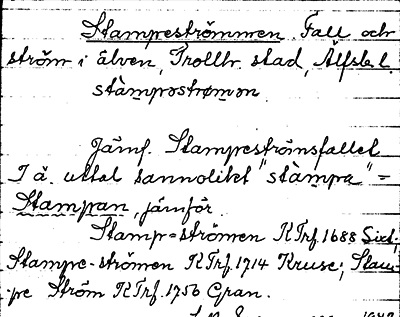 Stampeströmmen. Fall och
ström i älven, Trollh. stad, Älfsb. l.
stàmpostrømon.
Jämf. Stampeströmsfallet
I ä. uttal sannolikt "stàmpa" =
Stampan, jämför
Stamp=strömen KTrf. 1688
Stampe-strömen KTrf. 1714 Kruse; Stam-
pe Ström KTrf. 1756 Gran.